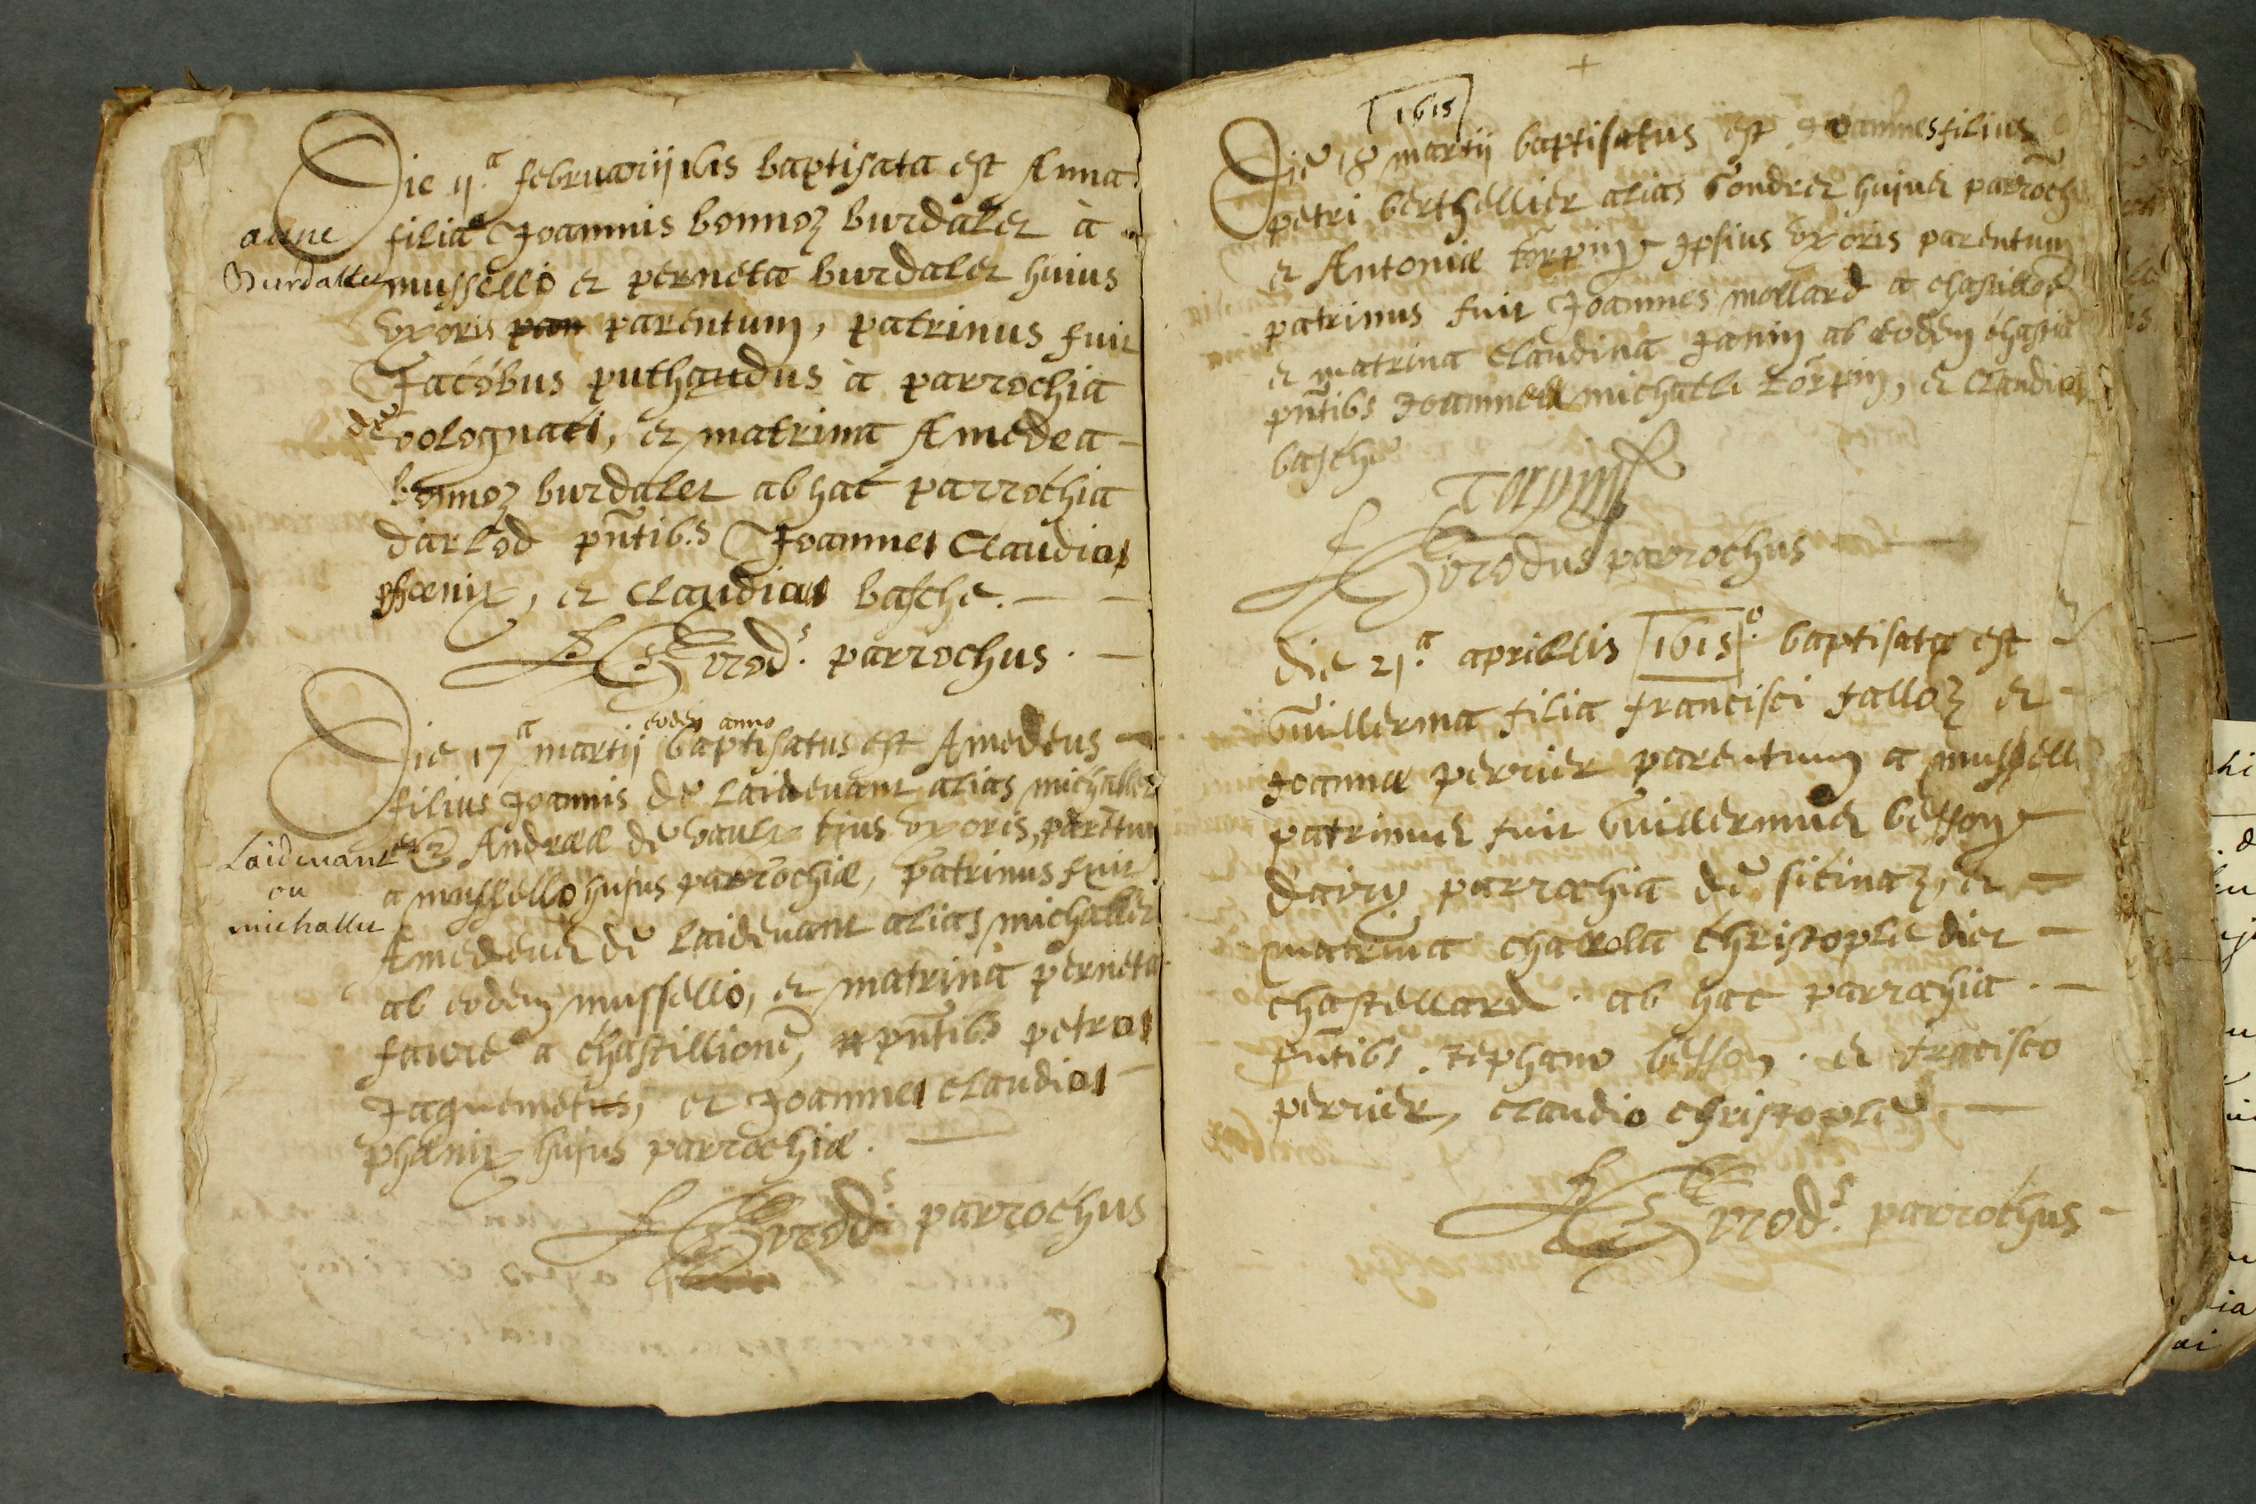 Die 11.a februarij 1615 baptisata est Anna
anne
filia Joannis bonnoz burdalet à
Burdallet
mussello et perneta burdalet huius
uxoris pan parentum, patrinus fuit
Jacobus puthaudus à parrochia
de volognati, et matrina Amedea
bonnoz burdalet ab hac parrochia
darlod pñtibs Joanne Claudio
phoenix, et Claudio basche.
parrochus.
Die 17a martij eodem anno baptisatus est Amedeus
filius Joannis de Laidevant alias michallet
et Andreæ de vaulx ejus uxoris, parentum
Laidevant
ou
michallet
a mussello hujus parrochiæ, patrinus fuit
Amedeus de Laidevant alias michallet
ab eodem mussello, et matrina perneta
favre a chastillione, pñtibs petro
Jaquemetus, et Joanne claudio
phænix hujus parrochiæ.
parrochus
1615
Die 18 martij baptisatus est Joannes filius
petri berthellier alias Gondret hujus parroch
et Antoniæ torpin ipsius uxoris parentum
patrinus fuit Joannes mollard a chastillon
et matrina Claudina Janin ab eodem chastil
pñtibs Joanne michaele torpin, et Claudio
basche
Torpin
parrochus
die 21.a aprillis 1615o. baptisata est
Guillerma filia francisci Jalloz et
Joannæ perrier parentum a mussell
patrinus fuit Guillermus besson
dairy parrochia de sitinaz, et
matrina charola christople diet
chastellard. ab hac parrochia.
pñtibs. stephano besson. et francisco
perrier, claudio christople.
parrochus